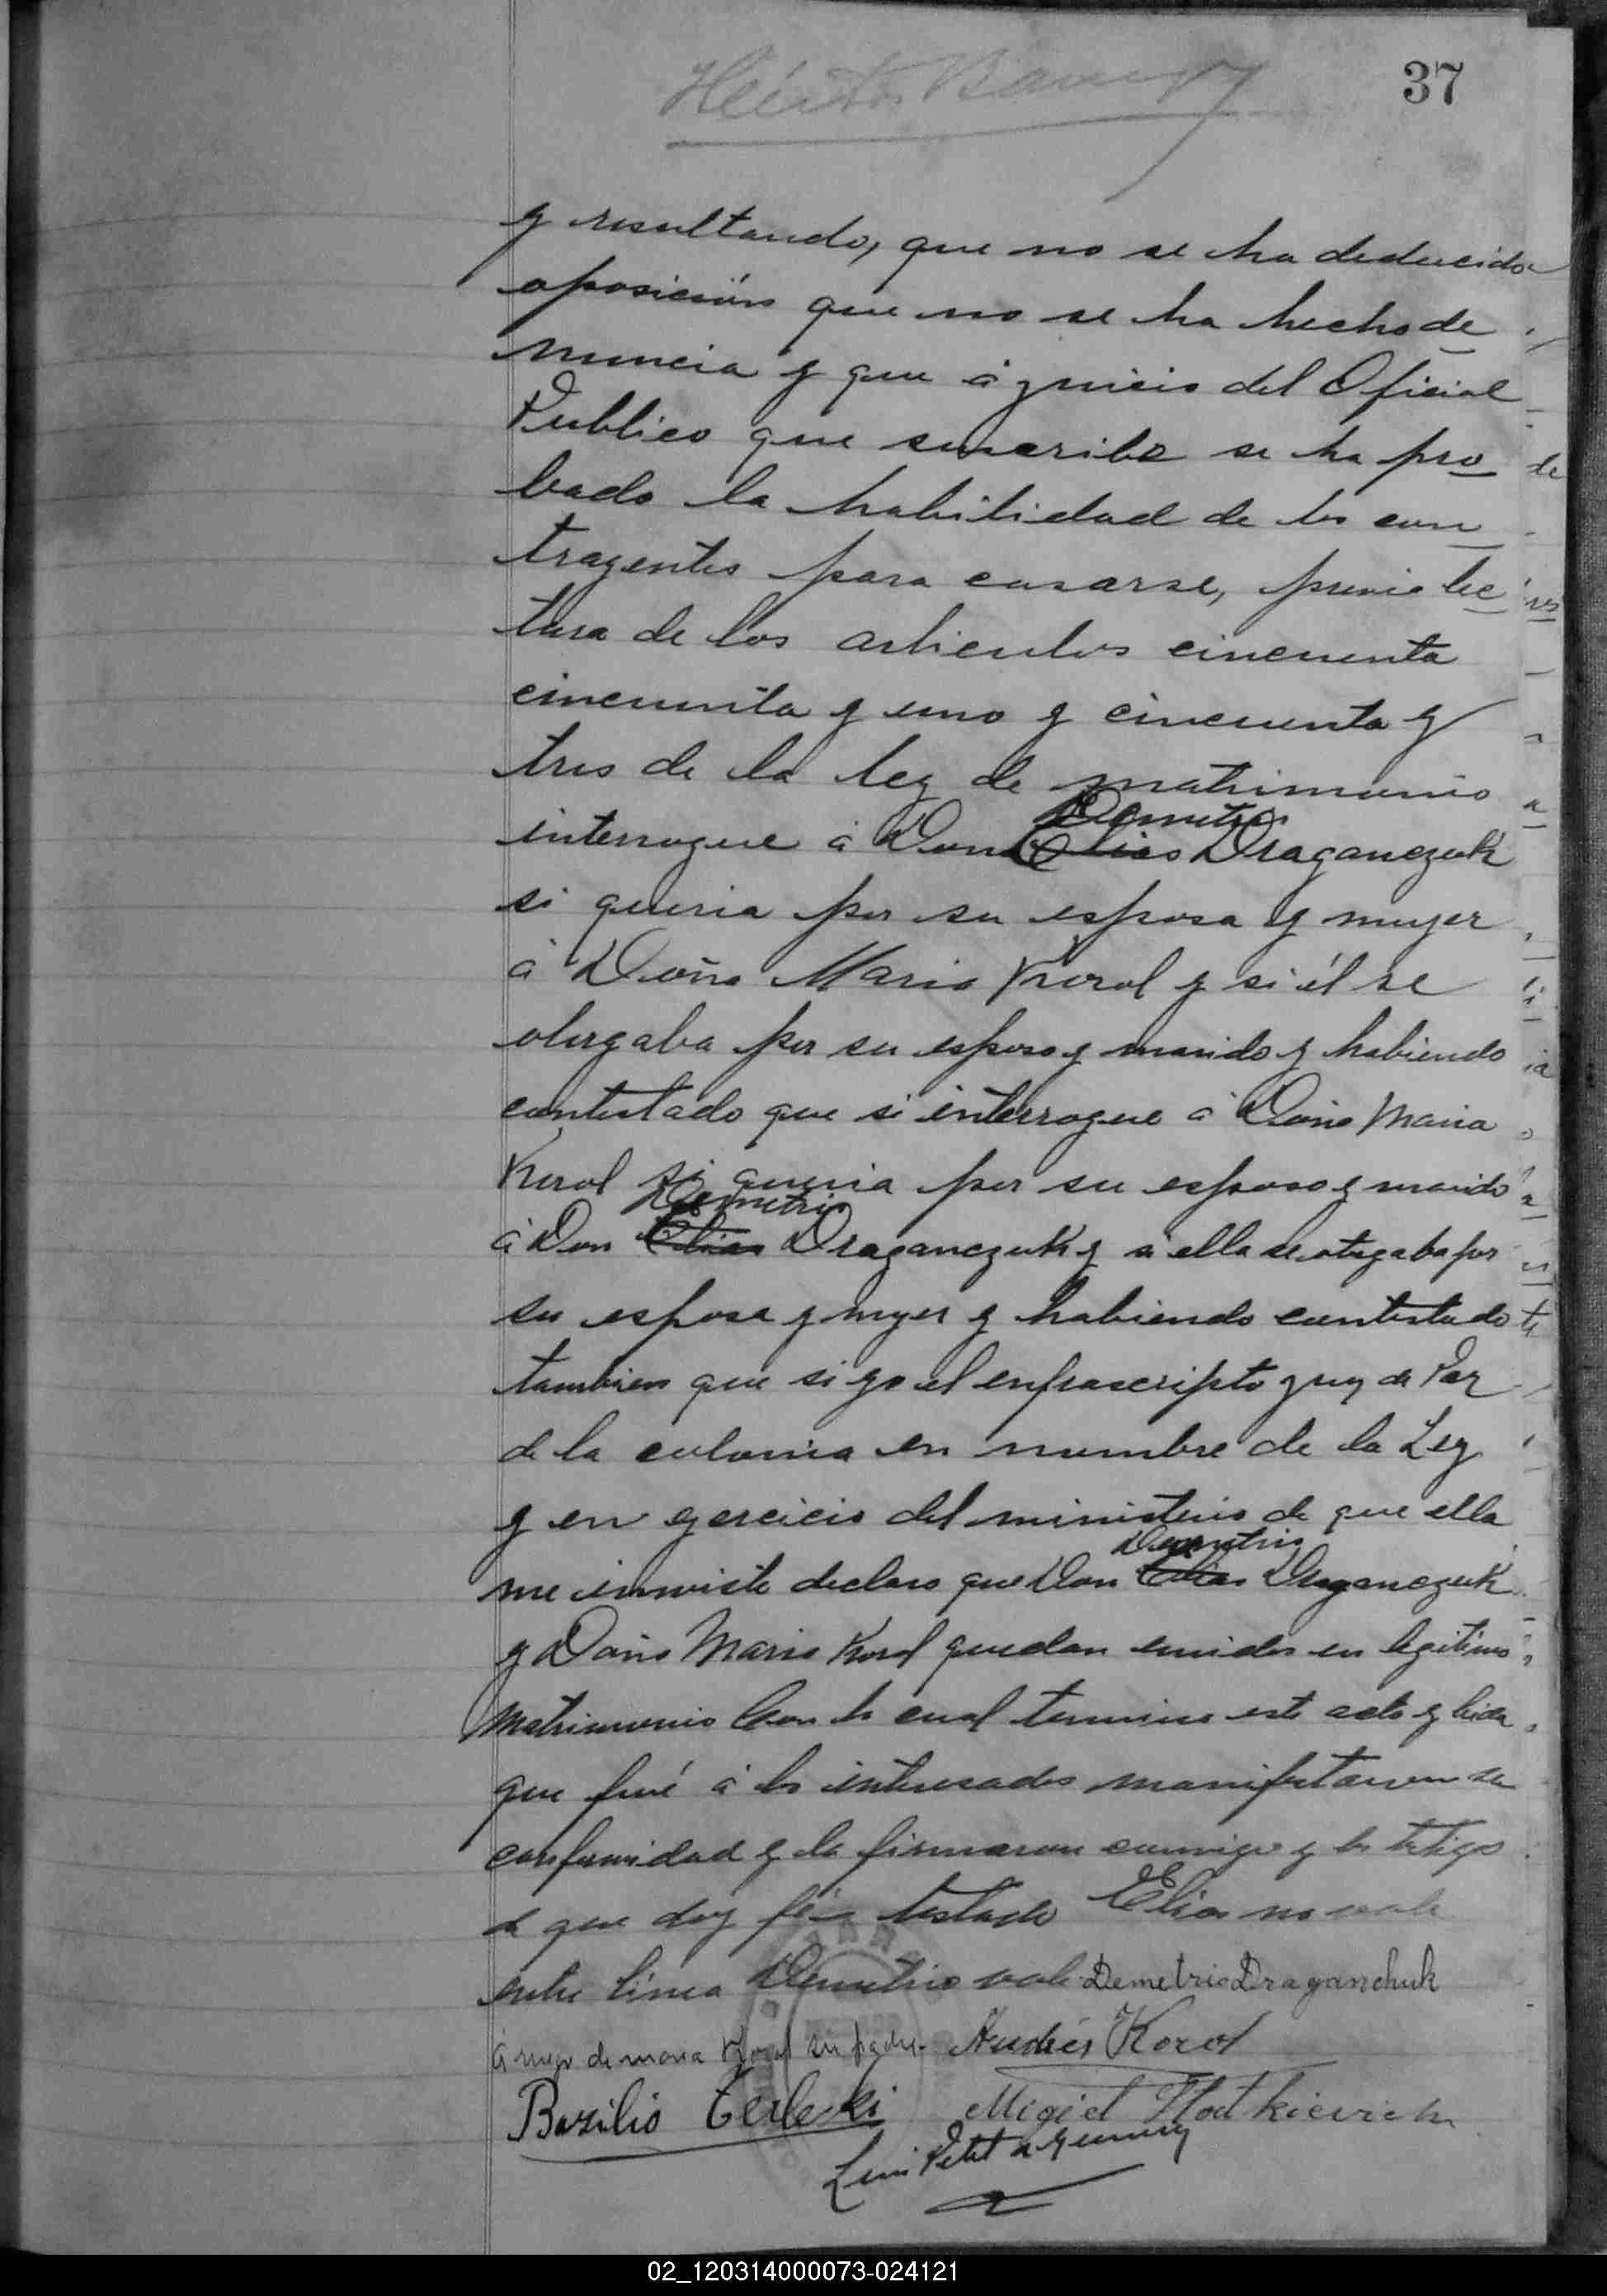 37
y resultando, que no se ha deducido
oposición que no se ha hecho de
nuncia y que á juicio del Oficial
Publico que suscribe se ha pro
bado la habilidad de los con
trayentes para casarse, previa lec
tura de los articulos cincuenta
cincuenta y uno y cincuenta y
tres de la ley de matrimonio
Demetrio
interrogue á Don Elias Draganczuk
si queria por su esposa y mujer
á Doña Maria Korol y si él se
otorgaba por su esposo y marido y habiendo
contestado que si interrogue á Doña Maria
Korol si queria por su esposo y marido
Demetrio
á Don Elias Draganczuk y si ella se otorgaba por
su esposa y mujer y habiendo contestado
tambien que si yo el infrascripto Juez de Paz
de la colonia en nombre de la Ley
y en ejercicio del ministerio de que ella
Demetrio
me inviste declaro que Don Elias Draganczuk
y Doña Maria Korol quedan unidos en legitimo
matrimonio Con lo cual termino este acto y leida
que fué á los interesados manifestaron su
conformidad y la firmaron conmigo y los testigos
de que doy fé testado Elias no vale
entre linea Demetrio vale Demetrio Draganchuk
á ruego de maria Korol su padre Andrés Korol
Bazilio Terleski Miguel
Luis Petit
02_120314000073-024121